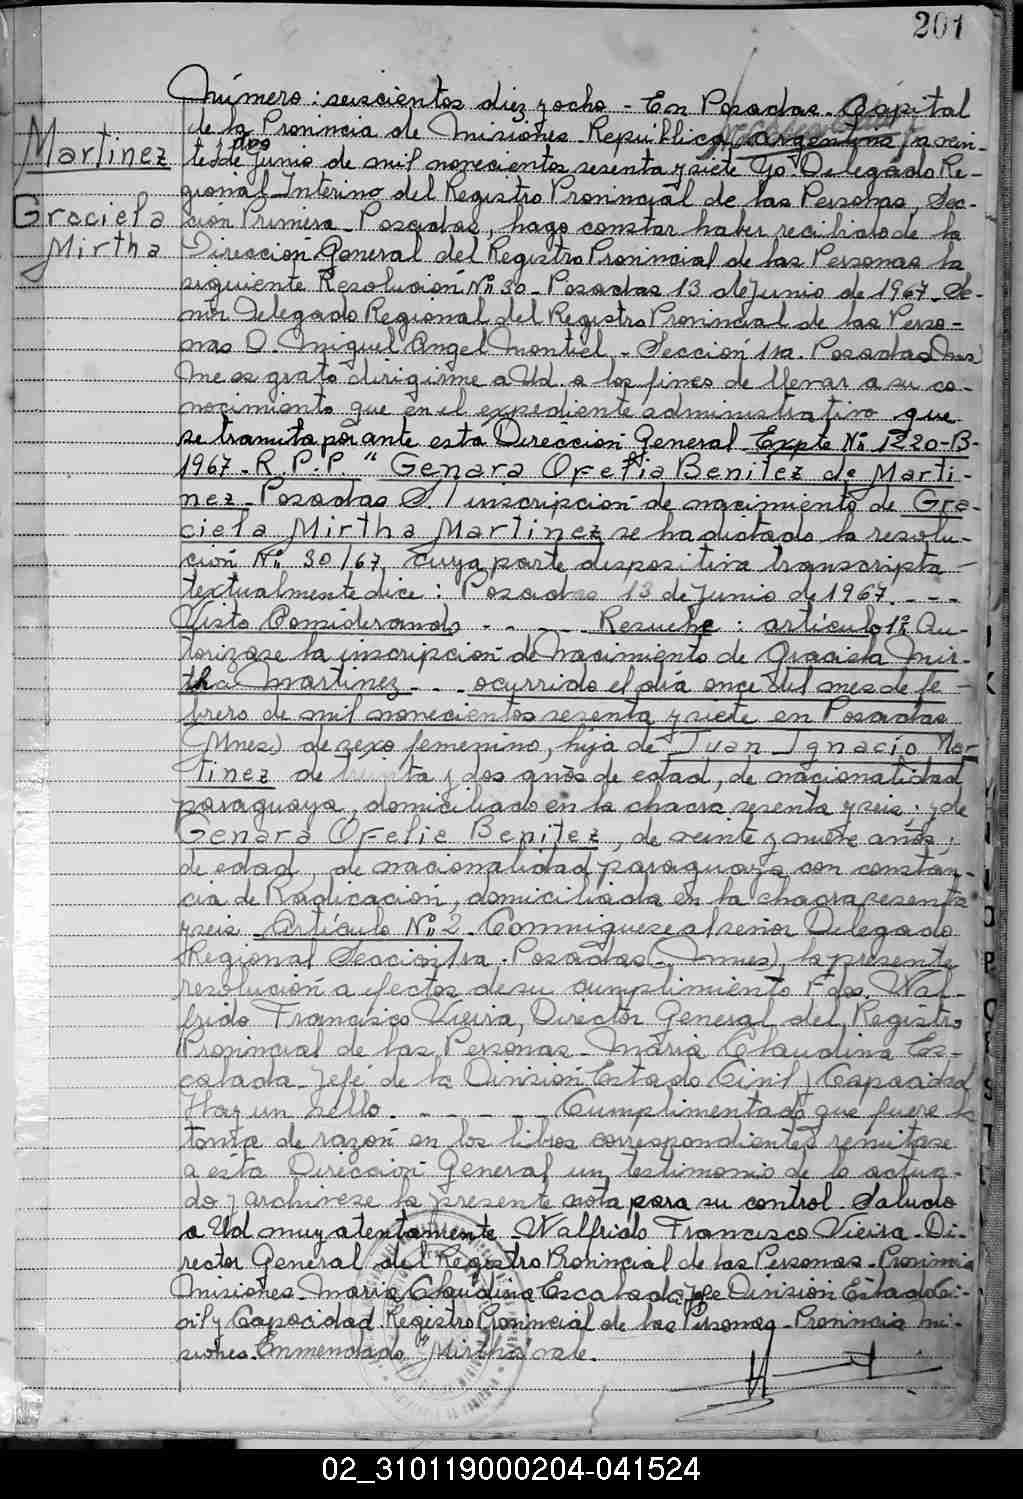 201
Martinez
Graciela
Mirtha
Número: seiscientos diez y ocho - En Posadas - Capital
de la Provincia de Misiones - República Argentina, a vein-
tidos de Junio de mil novecientos sesenta y siete Yo Delegado Re-
gional Interino del Registro Provincial de las Personas, Sec-
ción Primera - Posadas, hago constar haber recibido de la
Dirección General del Registro Provincial de las Personas la
siguiente Resolución Nº 30 - Posadas 13 de Junio de 1967 - Se-
ñor Delegado Regional del Registro Provincial de las Perso-
nas D. Miguel Angel Montiel - Sección 1ra. Posadas (Mnes)
Me es grato dirigirme a Ud. a los fines de llevar a su co-
nocimiento que en el expediente administrativo que
se tramita por ante esta Dirección General Expte Nº 1220-B-
1967 - R.P.P. "Genara Ofelia Benitez de Marti-
nez - Posadas S/ inscripción de nacimiento de Gra-
ciela Mirtha Martinez se ha dictado la resolu-
ción Nº 30/67 cuya parte dispositiva transcripta
textualmente dice: Posadas 13 de Junio de 1967 - - -
Visto Considerando - - - - Resuelve: artículo 1º Au-
torizase la inscripción de Nacimiento de Graciela Mir-
tha Martinez - - - ocurrido el día once del mes de fe-
brero de mil novecientos sesenta y siete en Posadas
(Mnes) de sexo femenino, hija de Juan Ignacio Mar-
tinez de treinta y dos años de edad, de nacionalidad
paraguaya, domiciliado en la chacra sesenta y seis; y de
Genara Ofelia Benitez, de veinte y nueve años,
de edad, de nacionalidad paraguaya con constan-
cia de Radicación, domiciliada en la chacra sesenta
y seis - Artículo Nº 2 - Comuniquese al señor Delegado
Regional Sección 1ra. Posadas (Mnes), la presente
resolución a efectos de su cumplimiento Fdo. Wal-
frido Francisco Vieira, Director General del Registro
Provincial de las Personas - María Claudina Es-
calada - Jefe de la División Estado Civil y Capacidad
Hay un sello - - - - - - Cumplimentado que fuere la
toma de razón en los libros correspondientes remitase
a esta Dirección General un testimonio de lo actua-
do y archivese la presente nota para su control. Saludo
a Ud muy atentamente - Walfrido Francisco Vieira - Di-
rector General del Registro Provincial de las Personas - Provincia
Misiones - María Claudina Escalada Jefe División Estado Ci-
vil y Capacidad Registro Provincial de las Personas - Provincia Mi-
siones. Enmendado "Mirtha" vale.
02_310119000204-041524